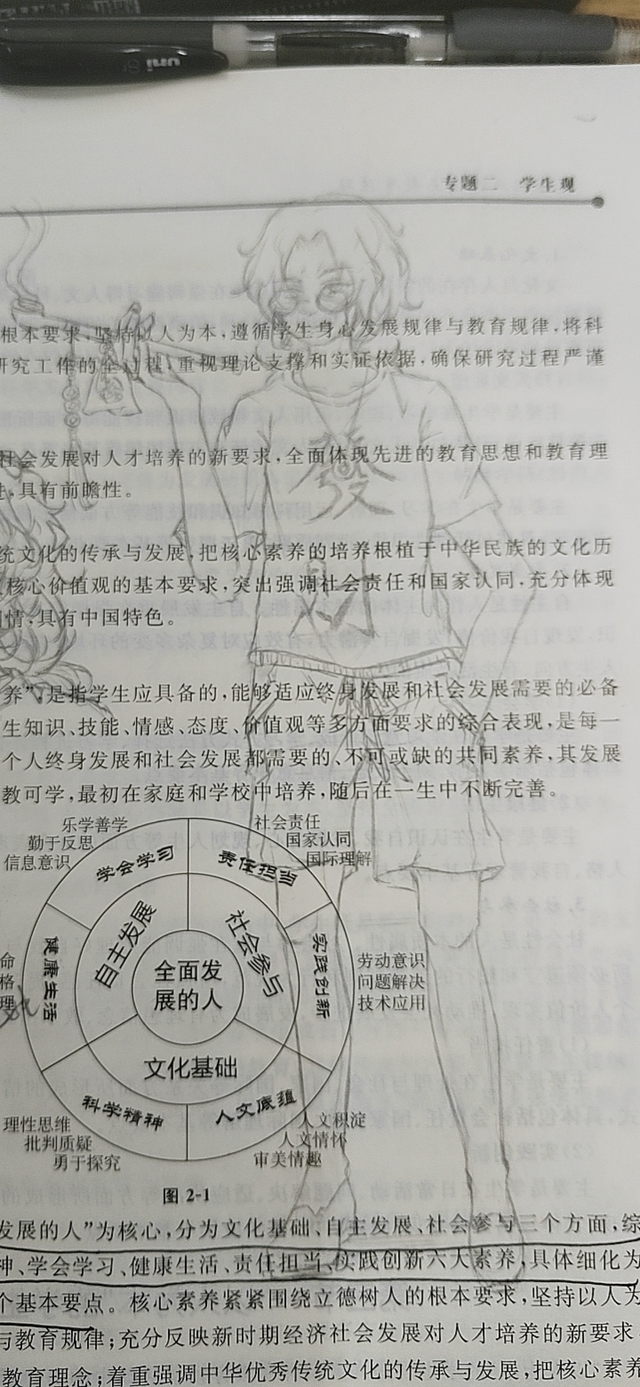 uni
专题二 学生观
根本要求,坚持以人为本,遵循学生身心发展规律与教育规律,将科
研究工作的全过程,重视理论支撑和实证依据,确保研究过程严谨
社会发展对人才培养的新要求,全面体现先进的教育思想和教育理
进,具有前瞻性。
發
统文化的传承与发展,把核心素养的培养根植于中华民族的文化历
核心价值观的基本要求,突出强调社会责任和国家认同,充分体现
国情,具有中国特色。
财
养”,是指学生应具备的,能够适应终身发展和社会发展需要的必备
生知识、技能、情感、态度、价值观等多方面要求的综合表现,是每一
个人终身发展和社会发展都需要的、不可或缺的共同素养,其发展
教可学,最初在家庭和学校中培养,随后在一生中不断完善。
乐学善学
勤于反思
信息意识
社会责任
国家认同
国际理解
学会学习
责任担当
健康生活
自主发展
社会参与
实践创新
命
格
理
全面发
展的人
劳动意识
问题解决
技术应用
文化基础
科学精神
人文底蕴
理性思维
批判质疑
勇于探究
人文积淀
人文情怀
审美情趣
图 2-1
发展的人”为核心,分为文化基础、自主发展、社会参与三个方面,综
神、学会学习、健康生活、责任担当、实践创新六大素养,具体细化为
个基本要点。核心素养紧紧围绕立德树人的根本要求,坚持以人为
与教育规律;充分反映新时期经济社会发展对人才培养的新要求
教育理念;着重强调中华优秀传统文化的传承与发展,把核心素养